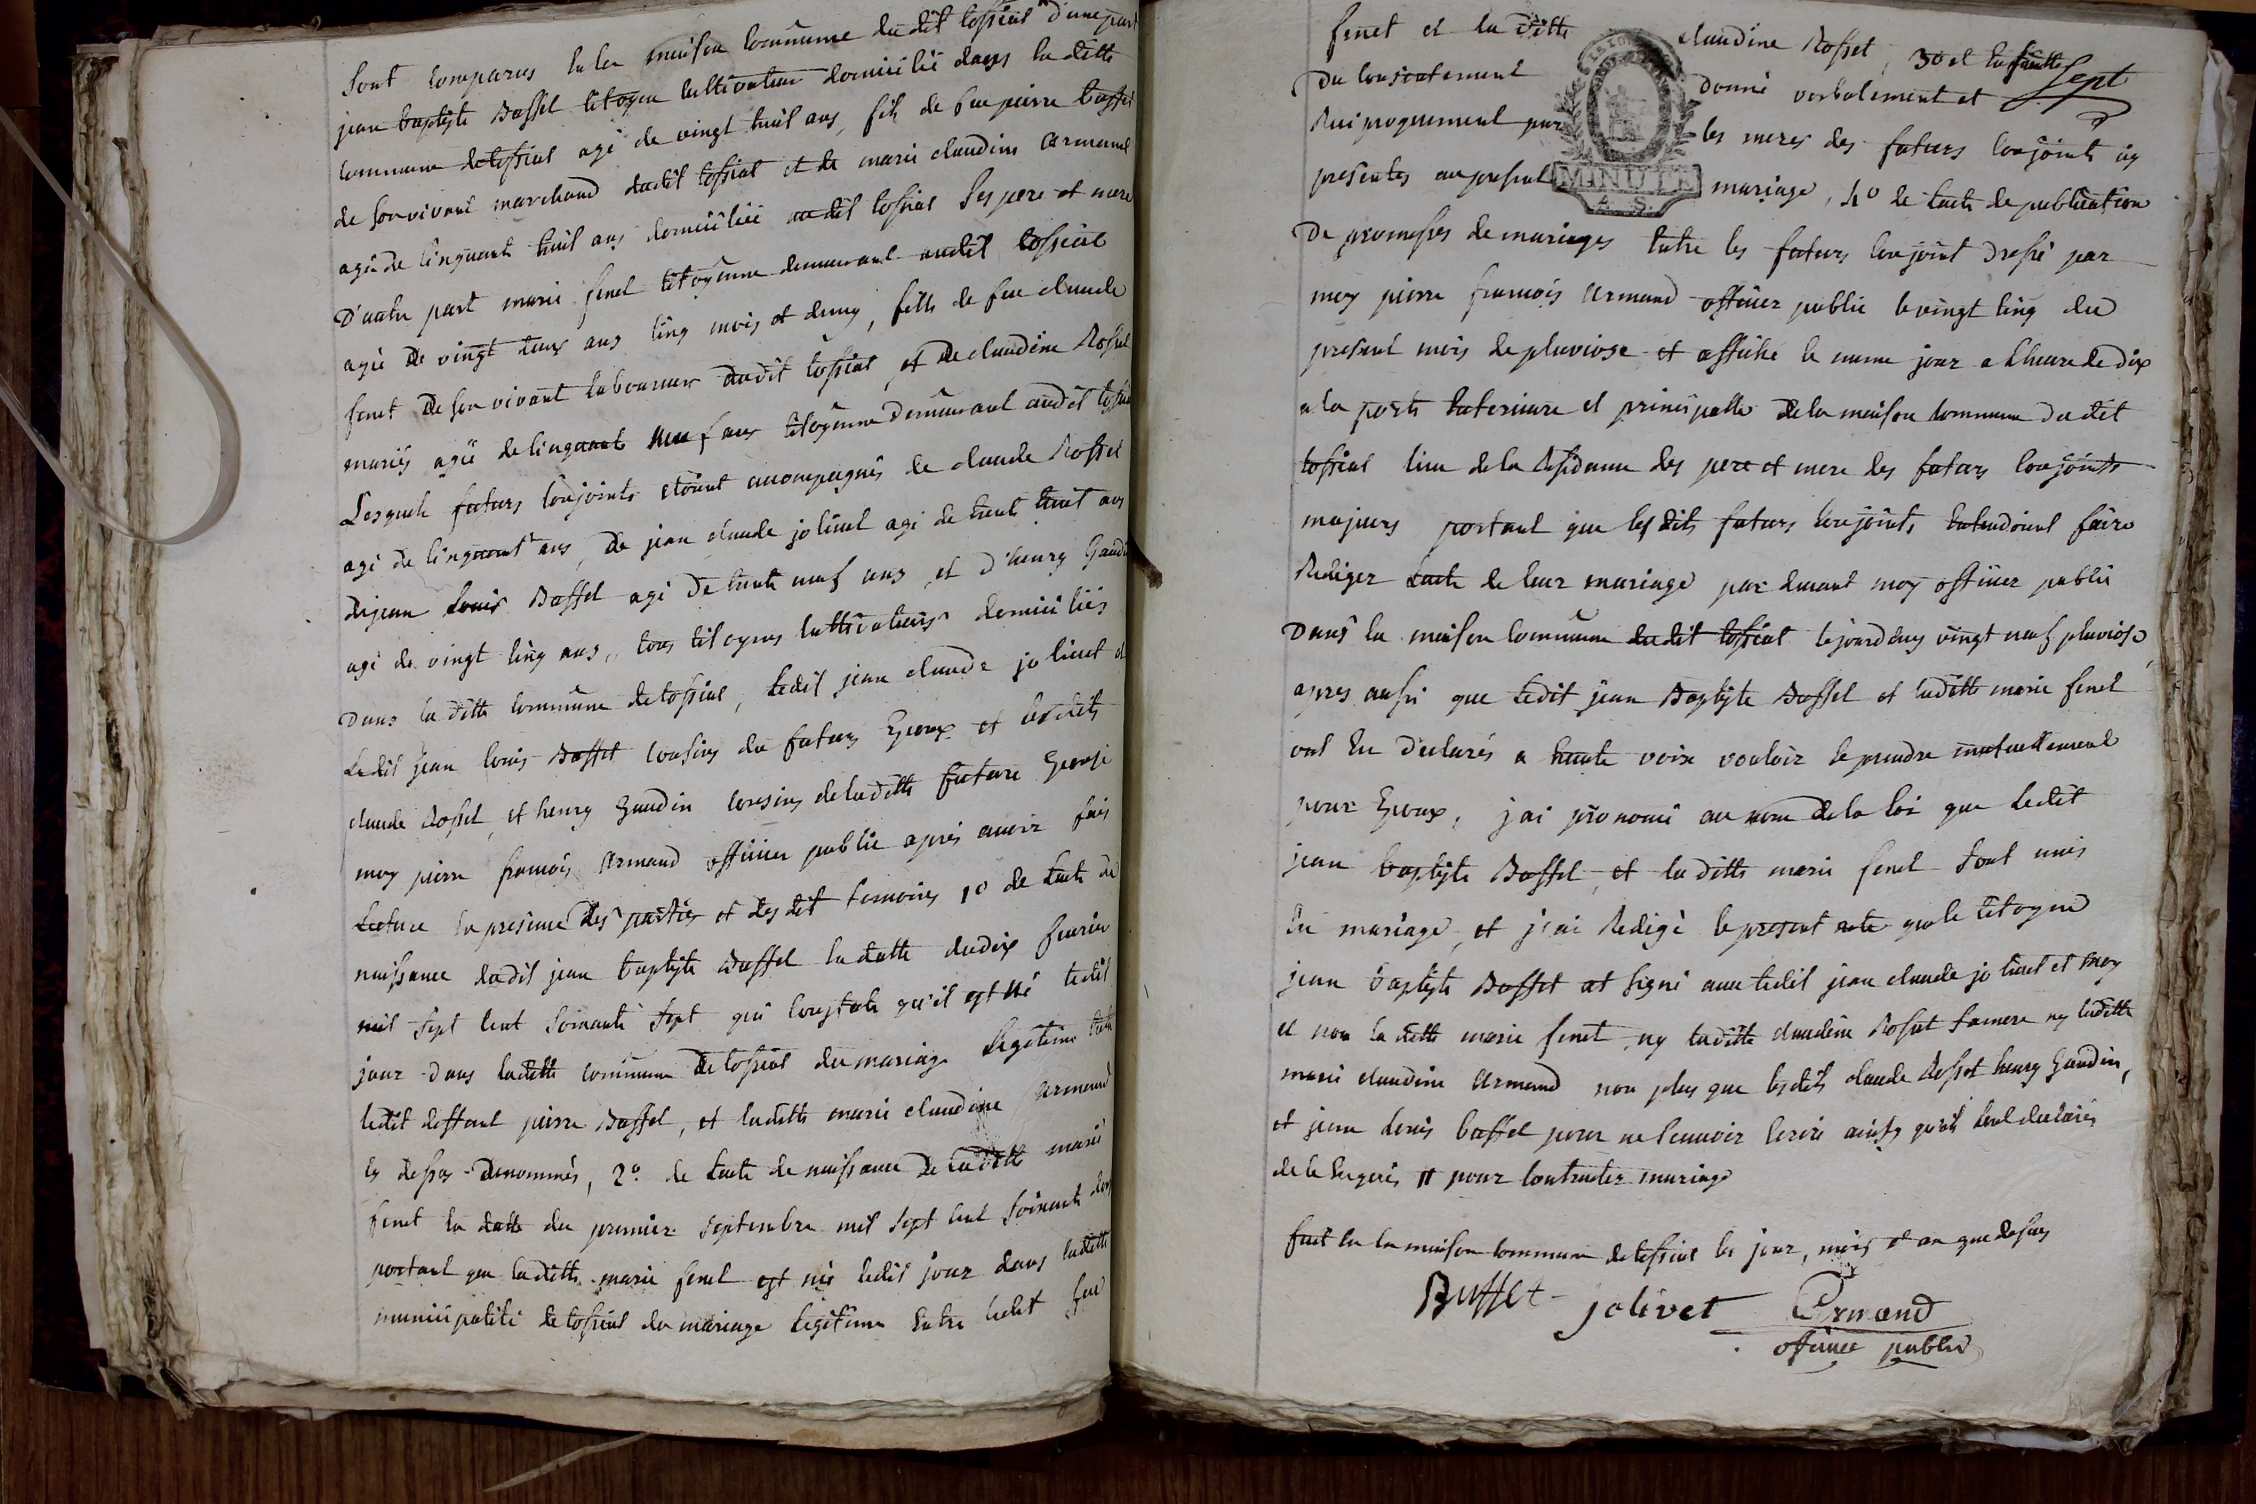 Sont comparus en la maison commune du dit Cossiat d'une part
jean baptiste Buffet citoyen cultivateur domicilié dans la ditte
commune de Cossiat agé de vingt huit ans, fils de feu pierre buffet
de son vivant marchand dudit Cossiat et de marie claudine armand
agée de cinquante huit ans domiciliée audit Cossiat ses pere et mere
D'autre part marie fenet citoyenne demeurant audit Cossiat
agée de vingt ans cinq mois et demy, fille de feu claude
fenet de son vivant laboureur dudit Cossiat, et de claudine Rosset
mariés agée de cinquante neuf ans citoyenne demeurant audit Cossiat
Lesquels futurs conjoints etoient accompagnés de claude Rosset
agé de cinquante ans, de jean claude jolivet agé de trente huit ans
de jean louis Buffet agé de trente neuf ans et d'henry Gaudin
agé de vingt cinq ans, tous citoyens cultivateurs domiciliés
Dans la ditte commune de Cossiat, ledit jean claude jolivet et
Ledit jean louis Buffet cousins du futurs Epoux et lesdits
claude Rosset, et henry Gaudin cousins de la ditte future Epouse
moy pierre françois Armand officier public après avoir fais
Lecture en presence des parties et des dit temoins 1º de lacte de
naissance dudit jean baptiste Buffet en datte du dix fevrier
mil sept cent soixante sept qui constate qu'il est né ledit
jour dans la ditte commune de Cossiat du mariage legitime entre
ledit deffunt pierre Buffet, et la ditte marie claudine Armand
cy dessus denommés, 2º de lacte de naissance de la ditte marie
fenet en datte du premier septembre mil sept cent soixante
portant que la ditte marie fenet est née ledit jour dans la ditte
municipalité de Cossiat du mariage legitime entre ledit feu
fenet et la ditte claudine Rosset, 3º et
Sept
Du consentement donné verbalement et
Reciproquement par les meres des futurs conjoints cy
presentes au present mariage, 4º de lacte de publication
MINUTE
A. S.
De promesses de mariages entre les futurs conjoint dressé par
moy pierre françois Armand officier public le vingt cinq du
present mois de pluviose et affiché le meme jour a l'heure de dix
a la porte exterieure et principalle de la maison commune du dit
Cossiat lieu de la Residence des pere et mere des futurs conjoints
majeurs portant que les dits futurs conjoints entendoient faire
Rediger lacte de leur mariage par devant moy officier public
Dans la maison commune du dit Cossiat cejourdhuy vingt neuf pluviose,
apres aussi que ledit jean Baptiste Buffet et laditte marie fenet
ont eu declarés a haute voix vouloir se prendre mutuellement
pour Epoux, j'ai prononcé au nom de la loi que ledit
jean baptiste Buffet, et la ditte marie fenet sont unis
En mariage, et j'ai Redigé le present acte que le citoyen
jean baptiste Buffet at signé avec ledit jean claude jolivet et moy
et non la ditte marie fenet ny laditte claudine Rosset sa mere ny laditte
marie claudine Armand non plus que lesdits claude Rosset henry Gaudin,
et jean louis buffet pour ne scavoir ecrire ainsy qu'ils ont declarés
de ce enquis # pour contracter mariage
fait en la maison commune de Cossiat les jour, mois et an que dessus
Buffet jolivet Armand
officier public